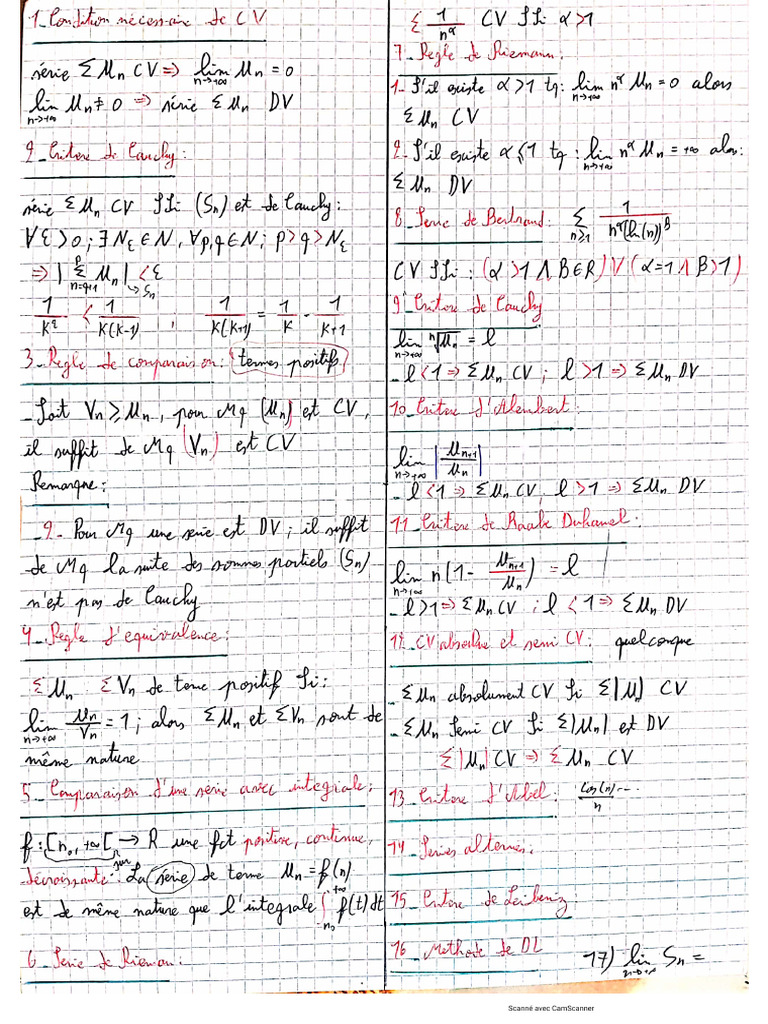 1_Condition nécessaire de CV
série ΣUn CV => lim Un = 0
n→+∞
lim Un ≠ 0 => série ΣUn DV
n→+∞
2_Critère de Cauchy:
série ΣUn CV SSi (Sn) est de Cauchy:
∀Ɛ>0; ∃ NƐ ∈ N, ∀p,q ∈ N; p>q>NƐ
=> | Σ(n=q+1 → p) Un | < Ɛ
↳ Sn
1/K² < 1/K(K-1) , 1/K(K+1) = 1/K - 1/K+1
3_Regle de comparaison: termes positifs
_Soit Vn ≥ Un, pour Mq (Un) est CV,
il suffit de Mq (Vn) est CV
Remarque:
_9_ Pour Mq une serie est DV; il suffit
de Mq la suite des sommes partiels (Sn)
n'est pas de Cauchy
4_Regle d'equivalence:
ΣUn ΣVn de terme positif Si:
lim Un/Vn = 1; alors ΣUn et ΣVn sont de
n→+∞
même nature
5_Comparaison d'une serie avec integrale:
f: [n0, +∞[ → R une fct positive, continue,
décroissante sur. La serie de terme Un = f(n)
est de même nature que l'integrale ∫(n0 → +∞) f(t)dt
6_Serie de Rieman:
Σ 1/n^α CV SSi α>1
7_Regle de Riemann:
1_S'il existe α>1 tq: lim n^α Un = 0 alors
n→+∞
ΣUn CV
2_S'il existe α≤1 tq: lim n^α Un = +∞ alor:
n→+∞
ΣUn DV
8_Serie de Bertrand: Σ(n≥1) 1/n^α(ln(n))^B
CV SSi: (α>1 ∧ B∈R) V (α=1 ∧ B>1)
9_Critere de Cauchy
lim ⁿ√Un = l
n→+∞
_ l<1 => ΣUn CV; l>1 => ΣUn DV
10_Critere d'Alembert:
lim |Un+1/Un|
n→+∞
_ l<1 => ΣUn CV, l>1 => ΣUn DV
11_Critere de Raabe Duhamel:
lim n(1 - Un+1/Un) = l
n→+∞
_ l>1 => ΣUn CV; l<1 => ΣUn DV
12_CV absolue et semi CV: quelconque
_ΣUn absolument CV Si Σ|U| CV
_ΣUn Semi CV Si Σ|Un| est DV
Σ|Un| CV => ΣUn CV
13_Critere d'Abel: Cos(n).../n
14_Series alternés.
15_Critere de Leibeniz
16_Methode de DL
17) lim Sn =
n→+∞
Scanné avec CamScanner